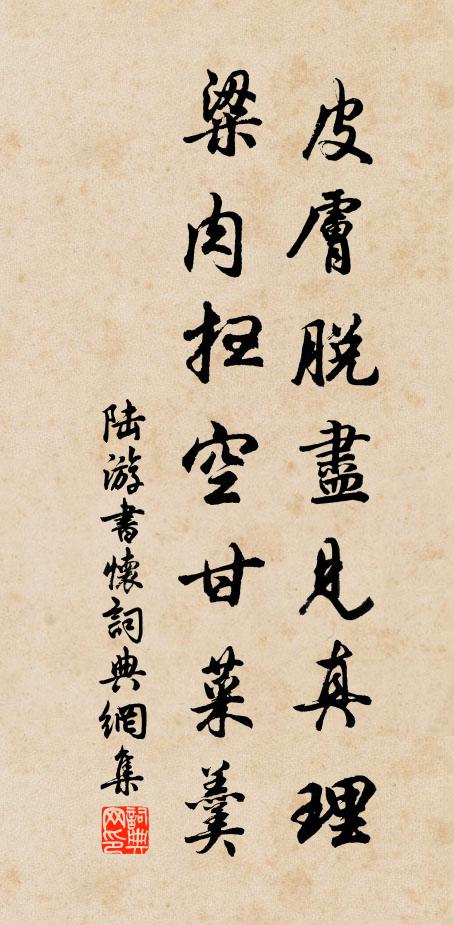 皮膚脫盡見真理
粱肉掃空甘菜羹
陸游書懷詞典網集
詞典网印